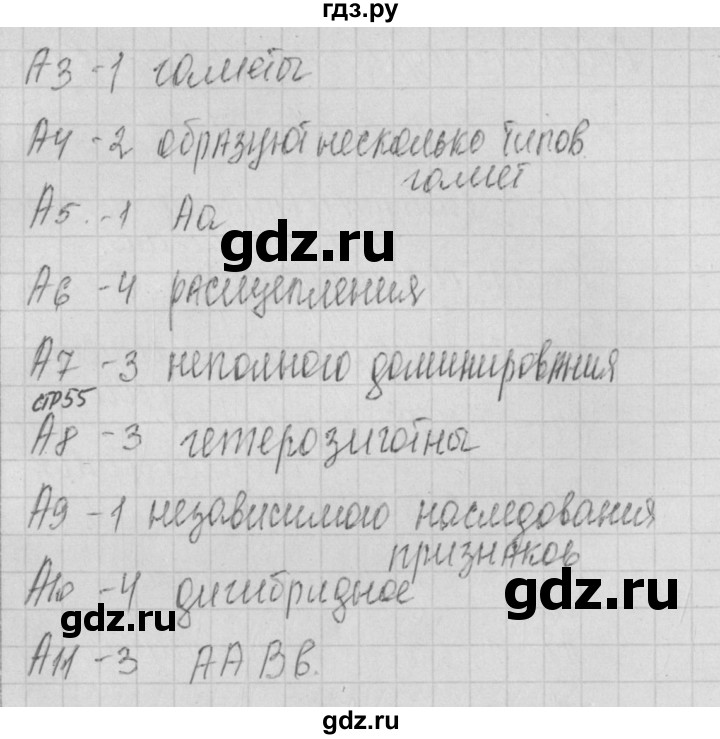 гдз.ру
А3 -1 гаметы
А4 -2 образуют несколько типов
гамет
А5. -1 Аа
gdz.ru
А6 -4 расщепления
А7 -3 неполного доминирования
стр 55
А8 -3 гетерозиготны
А9 -1 независимого наследования
признаков
А10 -4 дигибридное
gdz.ru
А11 -3 ААВв.
gdz.ru